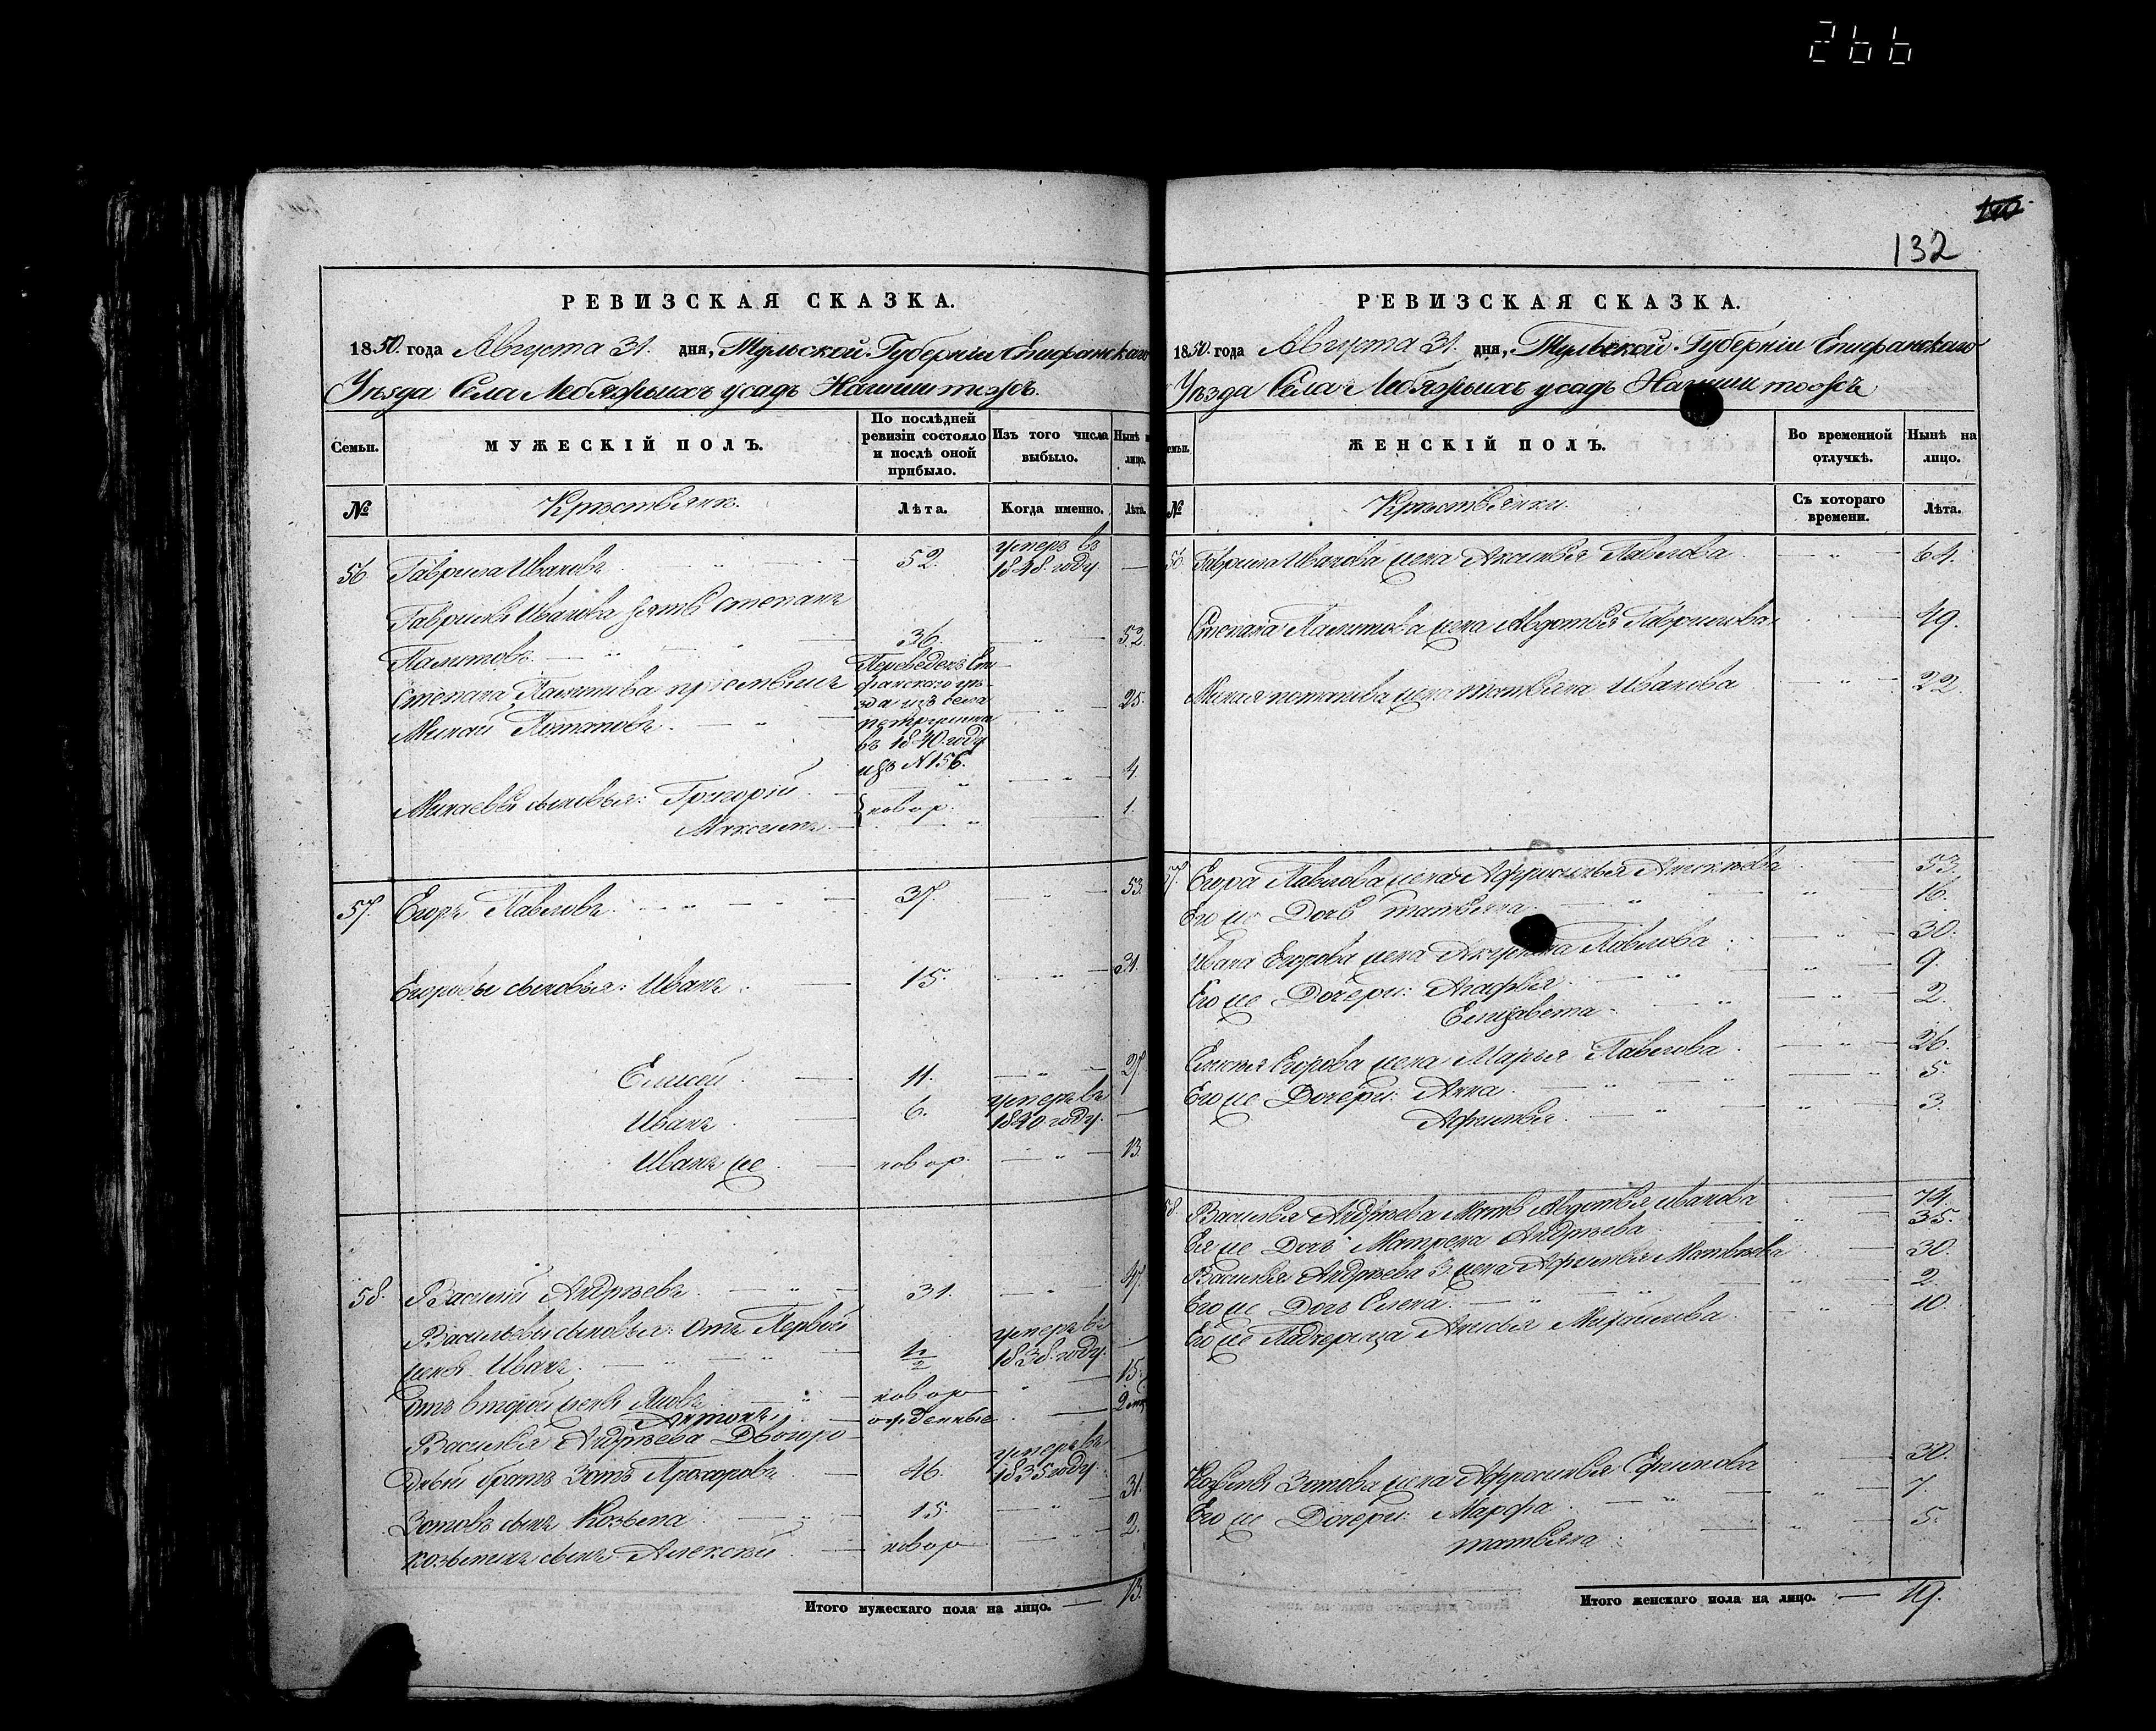 266
132
РЕВИЗСКАЯ СКАЗКА.
1850. года Августа 31. дня, Тульской Губернiи Епифанскаго
Уѣзда Села
МУЖЕСКIЙ ПОЛЪ.
Семьи.
По послѣдней ревизiи состояло и послѣ оной прибыло.
Изъ того числа выбыло.
Нынѣ на лицо.
№
Крестьянъ.
Лѣта.
Когда именно.
Лѣта.
56 Гаврила Ивановъ 52. умеръ въ 1848. году
Гаврилы Иванова зять Степанъ
36. 52.
Степана прiемышъ 25.
Переведенъ Епифанскаго уѣзда изъ села
въ 1840. году
изъ № 156.
Минаевы сыновья: Григорiй 4.
Максимъ новор. 1.
57. Егоръ Павловъ 37. 53.
Егоровы сыновья: Иванъ 15. 31.
Елисей 11. 27.
Иванъ 6. умеръ въ 1840 году.
Иванъ же новор. 13.
58. Василiй Андрѣевъ 31. 47.
Васильевы сыновья: отъ Первой
жены Иванъ 1/2 умеръ въ 1838. году.
отъ второй жены Яковъ новор 15.
Антонъ ожденные 2
Василья Андрѣева Двоюро
дный братъ Зотъ Прохоровъ 46. умеръ въ 1835 году.
Зотовъ сынъ Козьма 15. 31.
Козьминъ сынъ Алексѣй новор 2.
Итого мужескаго пола на лицо. 13.
РЕВИЗСКАЯ СКАЗКА.
1850. года Августа 31. дня, Тульской Губернiи Епифанскаго
Уѣзда Села
ЖЕНСКIЙ ПОЛЪ.
Во временной отлучкѣ.
Нынѣ на лицо.
№
Крестьянки.
Съ котораго времени.
Лѣта.
56. Гаврила Иванова жена Аксинья Павлова 64.
Степана жена Авдотья Гаврилова 49.
Миная жена Татьяна Иванова 22.
57. Егора Павлова жена Афросинья Алексѣева 53.
Его же Дочь Татьяна 16.
Ивана Егорова жена Акулина Павлова 30.
Его же Дочери: Агафья 9.
Елизавета 2.
Елисея Егорова жена Марья Павлова 26.
Его же Дочери: Анна 5.
Афимья 3.
58. Василья Андрѣева Мать Авдотья Иванова 74.
Ея же Дочь Матрена Андрѣева 35.
Василья Андрѣева 3. жена Афимья Матвѣева 30.
Его же Дочь Елена 2.
Его же Падчерица Анисья Михайлова 10.
Козьмы Зотова жена Афросинья Ефимова 30.
Его же Дочери: Марфа 7.
Татьяна 5.
Итого женскаго пола на лицо. 19.